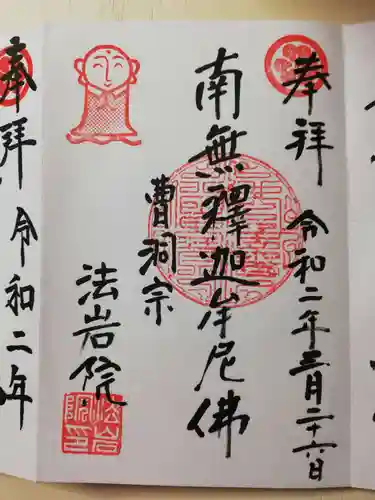 奉拝
令和二年三月二十六日
南無釋迦牟尼佛
曹洞宗
法岩院
法岩院印
奉拝
令和二年